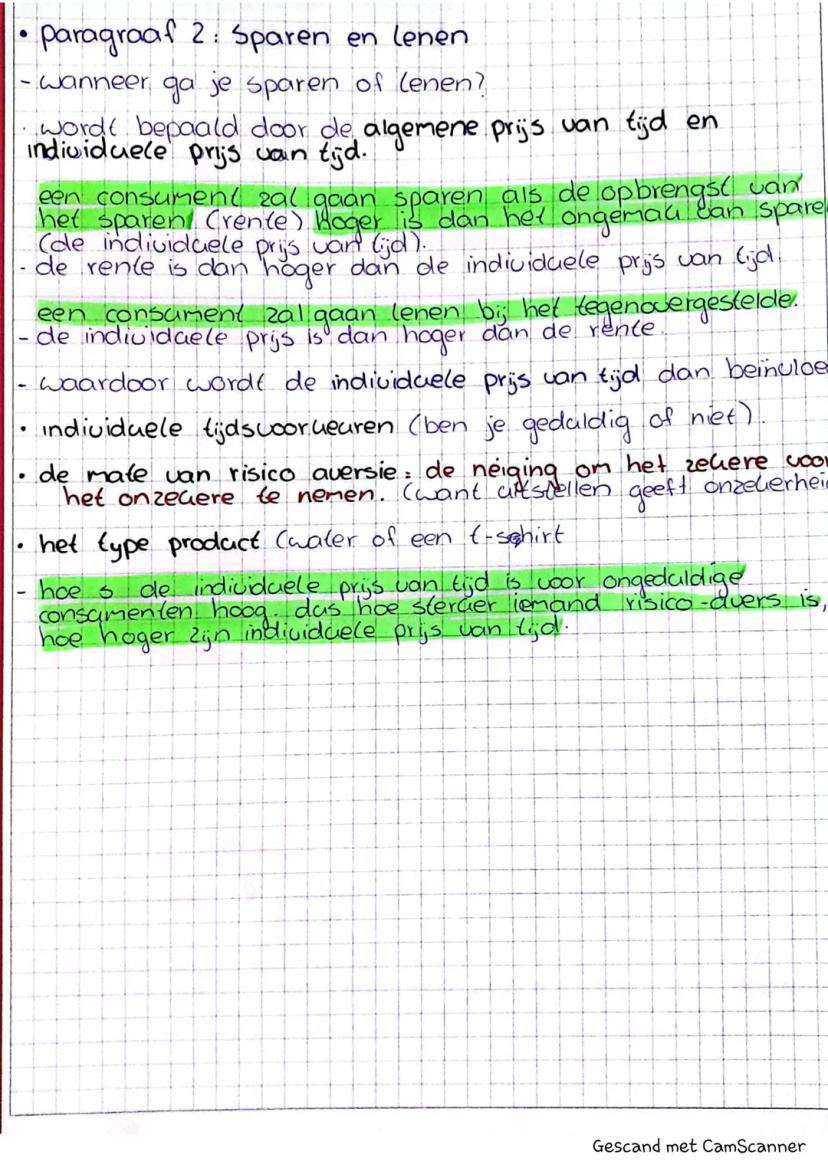 • paragraaf 2: Sparen en lenen
- wanneer ga je sparen of lenen?
· wordt bepaald door de algemene prijs van tijd en
individuele prijs van tijd.
een consument zal gaan sparen als de opbrengst van
het sparen (rente) hoger is dan het ongemak van spare
(de individuele prijs van tijd).
- de rente is dan hoger dan de individuele prijs van tijd.
een consument zal gaan lenen bij het tegenovergestelde.
- de individuele prijs is dan hoger dan de rente.
- waardoor wordt de individuele prijs van tijd dan beïnvloe
• individuele tijdsvoorkeuren (ben je geduldig of niet).
• de mate van risico aversie: de neiging om het zekere voor
het onzekere te nemen. (want uitstellen geeft onzekerhei
• het type product (water of een t-schirt
- hoe s de individuele prijs van tijd is voor ongeduldige
consumenten hoog. dus hoe sterker iemand risico-avers is,
hoe hoger zijn individuele prijs van tijd.
Gescand met CamScanner